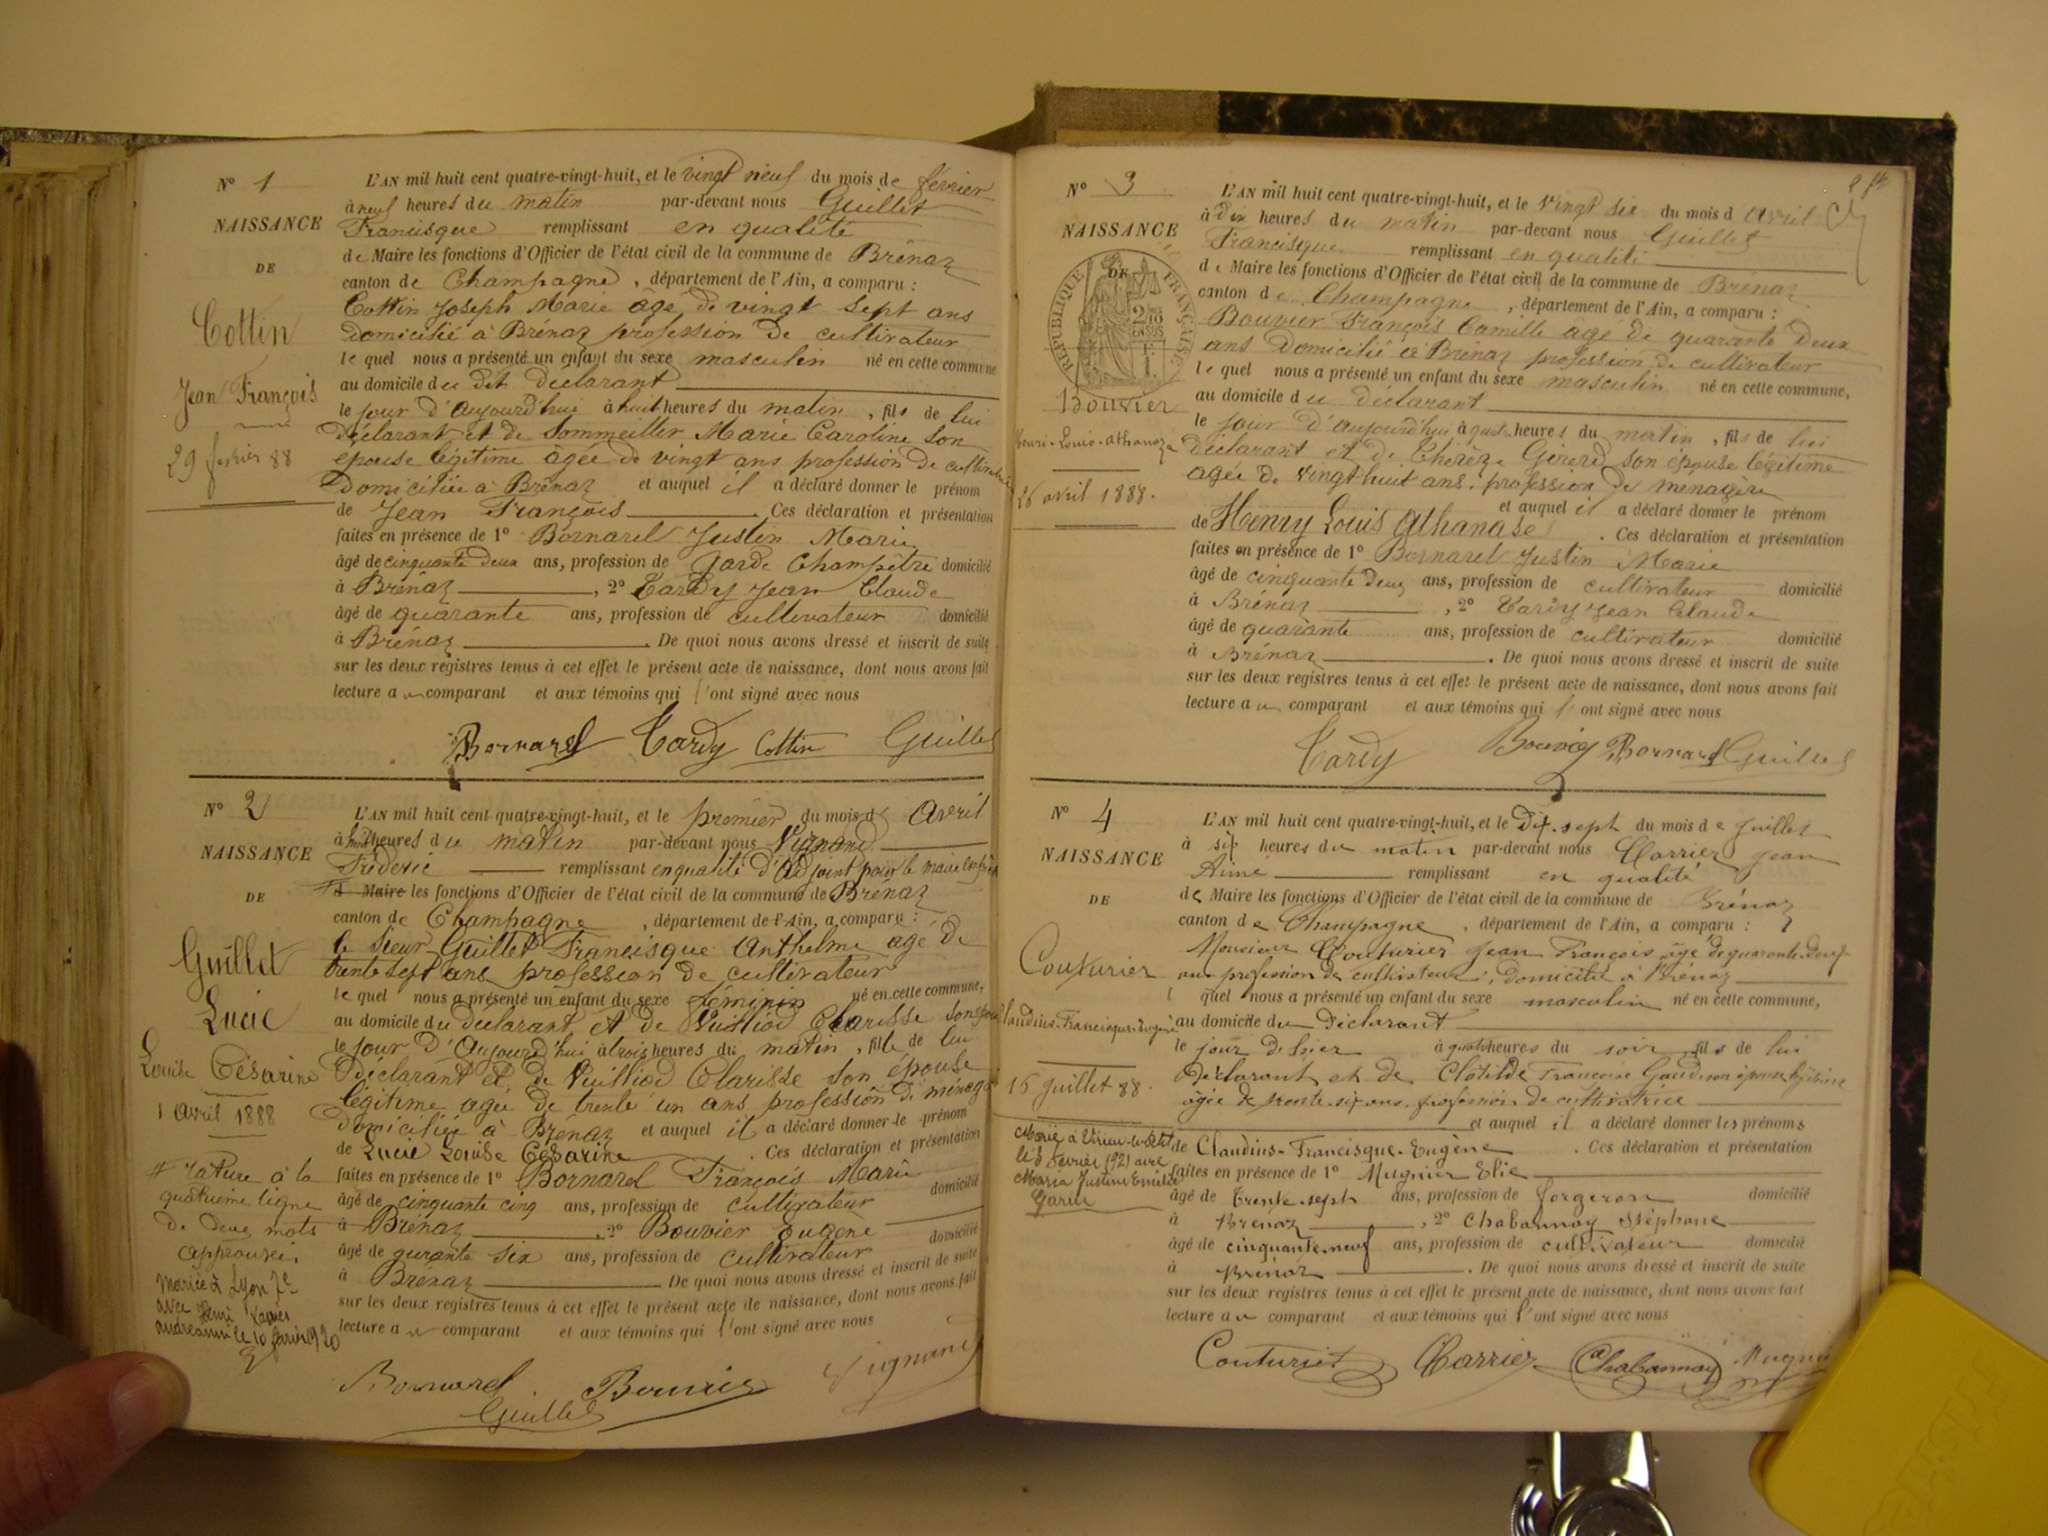 N° 1
NAISSANCE
DE
Cottin
Jean François
29 fevrier 88
L'AN mil huit cent quatre-vingt-huit, et le vingt neuf du mois de février
à neuf heures du matin par-devant nous Guillet
Francisque remplissant en qualité
de Maire les fonctions d'Officier de l'état civil de la commune de Brénaz
canton de Champagne, département de l'Ain, a comparu :
Cottin Joseph Marie age de vingt sept ans
domicilié à Brénaz profession de cultivateur
le quel nous a présenté un enfant du sexe masculin né en cette commune
au domicile du dit déclarant
le jour d'aujourd'hui à huit heures du matin, fils de lui
déclarant et de Sommeiller Marie Caroline son
epouse légitime agée de vingt ans profession de
Domiciliée à Brénaz et auquel il a déclaré donner le prénom
de Jean François. Ces déclaration et présentation
faites en présence de 1° Bornarel Justin Marie
âgé de cinquante deux ans, profession de Garde Champêtre domicilié
à Brénaz, 2° Tardy Jean Claude
âgé de quarante ans, profession de cultivateur domicilié
à Brénaz. De quoi nous avons dressé et inscrit de suite
sur les deux registres tenus à cet effet le présent acte de naissance, dont nous avons fait
lecture au comparant et aux témoins qui l'ont signé avec nous
Bornarel Tardy Cottin Guillet
N° 2
NAISSANCE
DE
Guillet
Lucie
Louise Césarine
1 avril 1888
# rature à la
quatrieme ligne
de deux mots
approuvée.
mariée à Lyon 7e
avec Henri Xavier
le 10 1920
L'AN mil huit cent quatre-vingt-huit, et le premier du mois d Avril
à huit heures du matin par-devant nous Vignand
Fréderic remplissant en qualité d'Adjoint pour le maire
# d Maire les fonctions d'Officier de l'état civil de la commune de Brénaz
canton de Champagne, département de l'Ain, a comparu :
le sieur Guillet Francisque Anthelme agé de
trente sept ans profession de cultivateur
le quel nous a présenté un enfant du sexe féminin né en cette commune,
au domicile du déclarant et de Vuilliod Clarisse son
le jour d'Aujourd'hui à trois heures du matin, fille de lui
déclarant et de Vuilliod Clarisse son épouse
légitime agée de trente un ans profession de
Domiciliée à Brénaz et auquel il a déclaré donner le prénom
de Lucie Louise Césarine. Ces déclaration et présentation
faites en présence de 1° Bornarel François Marie
âgé de cinquante cinq ans, profession de cultivateur domicilié
à Brénaz, 2° Bouvier Eugene
âgé de qurante six ans, profession de cultivateur domicilié
à Brénaz. De quoi nous avons dressé et inscrit de suite
sur les deux registres tenus à cet effet le présent acte de naissance, dont nous avons fait
lecture au comparant et aux témoins qui l'ont signé avec nous
Bornarel Bouvier Vignand
Guillet
N° 3
NAISSANCE
DE
RÉPUBLIQUE FRANÇAISE
2/10 EN SUS
Bouvier
Henri-Louis-Athanaze
26 avril 1888.
L'AN mil huit cent quatre-vingt-huit, et le vingt six du mois d Avril
à dix heures du matin par-devant nous Guillet
Francisque remplissant en qualité
de Maire les fonctions d'Officier de l'état civil de la commune de Brénaz
canton de Champagne, département de l'Ain, a comparu :
Bouvier François Camille agé de quarante deux
ans Domicilié à Brénaz profession de cultivateur
le quel nous a présenté un enfant du sexe masculin né en cette commune,
au domicile du déclarant
le jour d'aujourd'hui à heures du matin, fils de lui
déclarant et de Thérèze Gererd son épouse légitime
agée de vingt huit ans. profession de menagère
et auquel il a déclaré donner le prénom
de Henry Louis Athanase. Ces déclaration et présentation
faites en présence de 1° Bornarel Justin Marie
âgé de cinquante deux ans, profession de cultivateur domicilié
à Brénaz, 2° Tardy Jean Claude
âgé de quarante ans, profession de cultivateur domicilié
à Brénaz. De quoi nous avons dressé et inscrit de suite
sur les deux registres tenus à cet effet le présent acte de naissance, dont nous avons fait
lecture au comparant et aux témoins qui l'ont signé avec nous
Tardy Bouvier Bornarel Guillet
N° 4
NAISSANCE
DE
Couturier
Claudius-Francisque-Eugène
16 juillet 88.
Marié à Virieu-le-Petit
le 3 février 1921 avec
Maria Justine Emélie
L'AN mil huit cent quatre-vingt-huit, et le Dix-sept du mois de Juillet
à six heures du matin par-devant nous Charrier Jean
Aimé remplissant en qualité
de Maire les fonctions d'Officier de l'état civil de la commune de Brénaz
canton de Champagne, département de l'Ain, a comparu :
Monsieur Couturier Jean François âgé de quarante deux
ans profession de cultivateur, domicilié à Brénaz
l quel nous a présenté un enfant du sexe masculin né en cette commune,
au domicile du Déclarant
le jour d'hier à quatre heures du soir, fils de lui
Déclarant et de Clotilde Françoise son épouse légitime
âgée de trente six ans profession de cultivatrice
et auquel il a déclaré donner les prénoms
de Claudius-Francisque-Eugène. Ces déclaration et présentation
faites en présence de 1° Mugnier Elie
âgé de trente-sept ans, profession de forgeron domicilié
à Brénaz, 2° Chabannay Stéphane
âgé de cinquante-neuf ans, profession de cultivateur domicilié
à Brénaz. De quoi nous avons dressé et inscrit de suite
sur les deux registres tenus à cet effet le présent acte de naissance, dont nous avons fait
lecture au comparant et aux témoins qui l'ont signé avec nous
Couturier Charrier Chabannay Mugnier